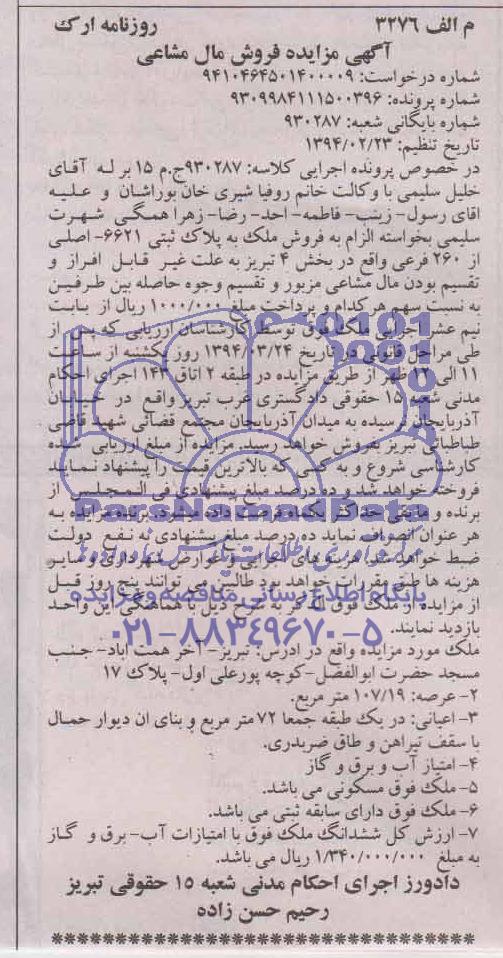 م الف ۳۲۷۶ روزنامه ارک
آگهی مزایده فروش مال مشاعی
شماره درخواست: ۹۴۱۰۴۶۴۵۰۱۴۰۰۰۰۹
شماره پرونده: ۹۳۰۹۹۸۴۱۱۱۵۰۰۳۹۶
شماره بایگانی شعبه: ۹۳۰۲۸۷
تاریخ تنظیم: ۱۳۹۴/۰۲/۲۳
در خصوص پرونده اجرایی کلاسه: ۹۳۰۲۸۷ج.م ۱۵ بر له آقای
خلیل سلیمی با وکالت خانم روفیا شیری خان بوراشان و علیه
اقای رسول- زینب- فاطمه- احد- رضا- زهرا همگی شهرت
سلیمی بخواسته الزام به فروش ملک به پلاک ثبتی ۶۶۲۱- اصلی
از ۲۶۰ فرعی واقع در بخش ۴ تبریز به علت غیر قابل افراز و
تقسیم بودن مال مشاعی مزبور و تقسیم وجوه حاصله بین طرفین
به نسبت سهم هر کدام و پرداخت مبلغ ۱۰۰۰/۰۰۰ ریال از بابت
نیم عشر اجرایی ملک فوق توسط کارشناسان ارزیابی که پس از
طی مراحل قانونی در تاریخ ۱۳۹۴/۰۳/۲۴ روز یکشنبه از ساعت
۱۱ الی ۱۲ ظهر از طریق مزایده در طبقه ۲ اتاق ۱۴۳ اجرای احکام
مدنی شعبه ۱۵ حقوقی دادگستری غرب تبریز واقع در خیابان
آذربایجان نرسیده به میدان آذربایجان مجتمع قضائی شهید قاضی
طباطبائی تبریز بفروش خواهد رسید. مزایده از مبلغ ارزیابی شده
کارشناسی شروع و به کسی که بالاترین قیمت را پیشنهاد نماید
فروخته خواهد شد و ده درصد مبلغ پیشنهادی فی المجلس از
برنده و مابقی حداکثر یکماه فرصت داده میشود. برنده مزایده به
هر عنوان انصراف نماید ده درصد مبلغ پیشنهادی به نفع دولت
ضبط خواهد شد. هزینه های اجرایی و عوارض شهرداری و سایر
هزینه ها طبق مقررات خواهد بود طالبین می توانند پنج روز قبل
از مزایده از ملک فوق الذکر به شرح ذیل با هماهنگی این واحد
بازدید نمایند.
ملک مورد مزایده واقع در ادرس: تبریز- آخر همت آباد- جنب
مسجد حضرت ابوالفضل- کوچه پورعلی اول- پلاک ۱۷
۲- عرصه: ۱۰۷/۱۹ متر مربع.
۳- اعیانی: در یک طبقه جمعا ۷۲ متر مربع و بنای ان دیوار حمال
با سقف تیراهن و طاق ضربدری.
۴- امتیاز آب و برق و گاز
۵- ملک فوق مسکونی می باشد.
۶- ملک فوق دارای سابقه ثبتی می باشد.
۷- ارزش کل ششدانگ ملک فوق با امتیازات آب- برق و گاز
به مبلغ ۱/۳۴۰/۰۰۰/۰۰۰ ریال می باشد.
دادورز اجرای احکام مدنی شعبه ۱۵ حقوقی تبریز
رحیم حسن زاده
ParsNamadData
پایگاه اطلاع رسانی مناقصه و مزایده
۰۲۱-۸۸۳۴۹۶۷۰-۵